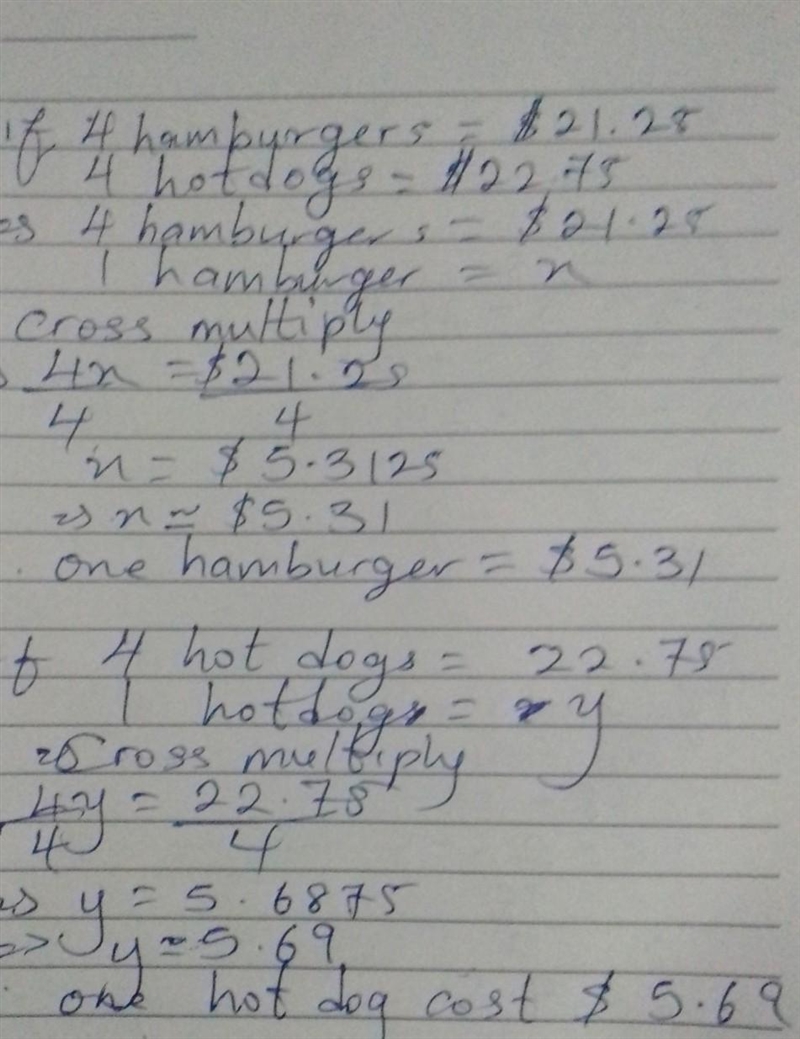 if 4 hamburgers = $21.25
4 hotdogs = $22.75
=> 4 hamburgers = $21.25
1 hamburger = x
cross multiply
4x = $21.25
4 4
x = $5.3125
=> x ≃ $5.31
one hamburger = $5.31
if 4 hot dogs = 22.75
1 hotdog = y
=> Cross multiply
4y = 22.75
4 4
=> y = 5.6875
=> y ≈ 5.69
one hot dog cost $5.69